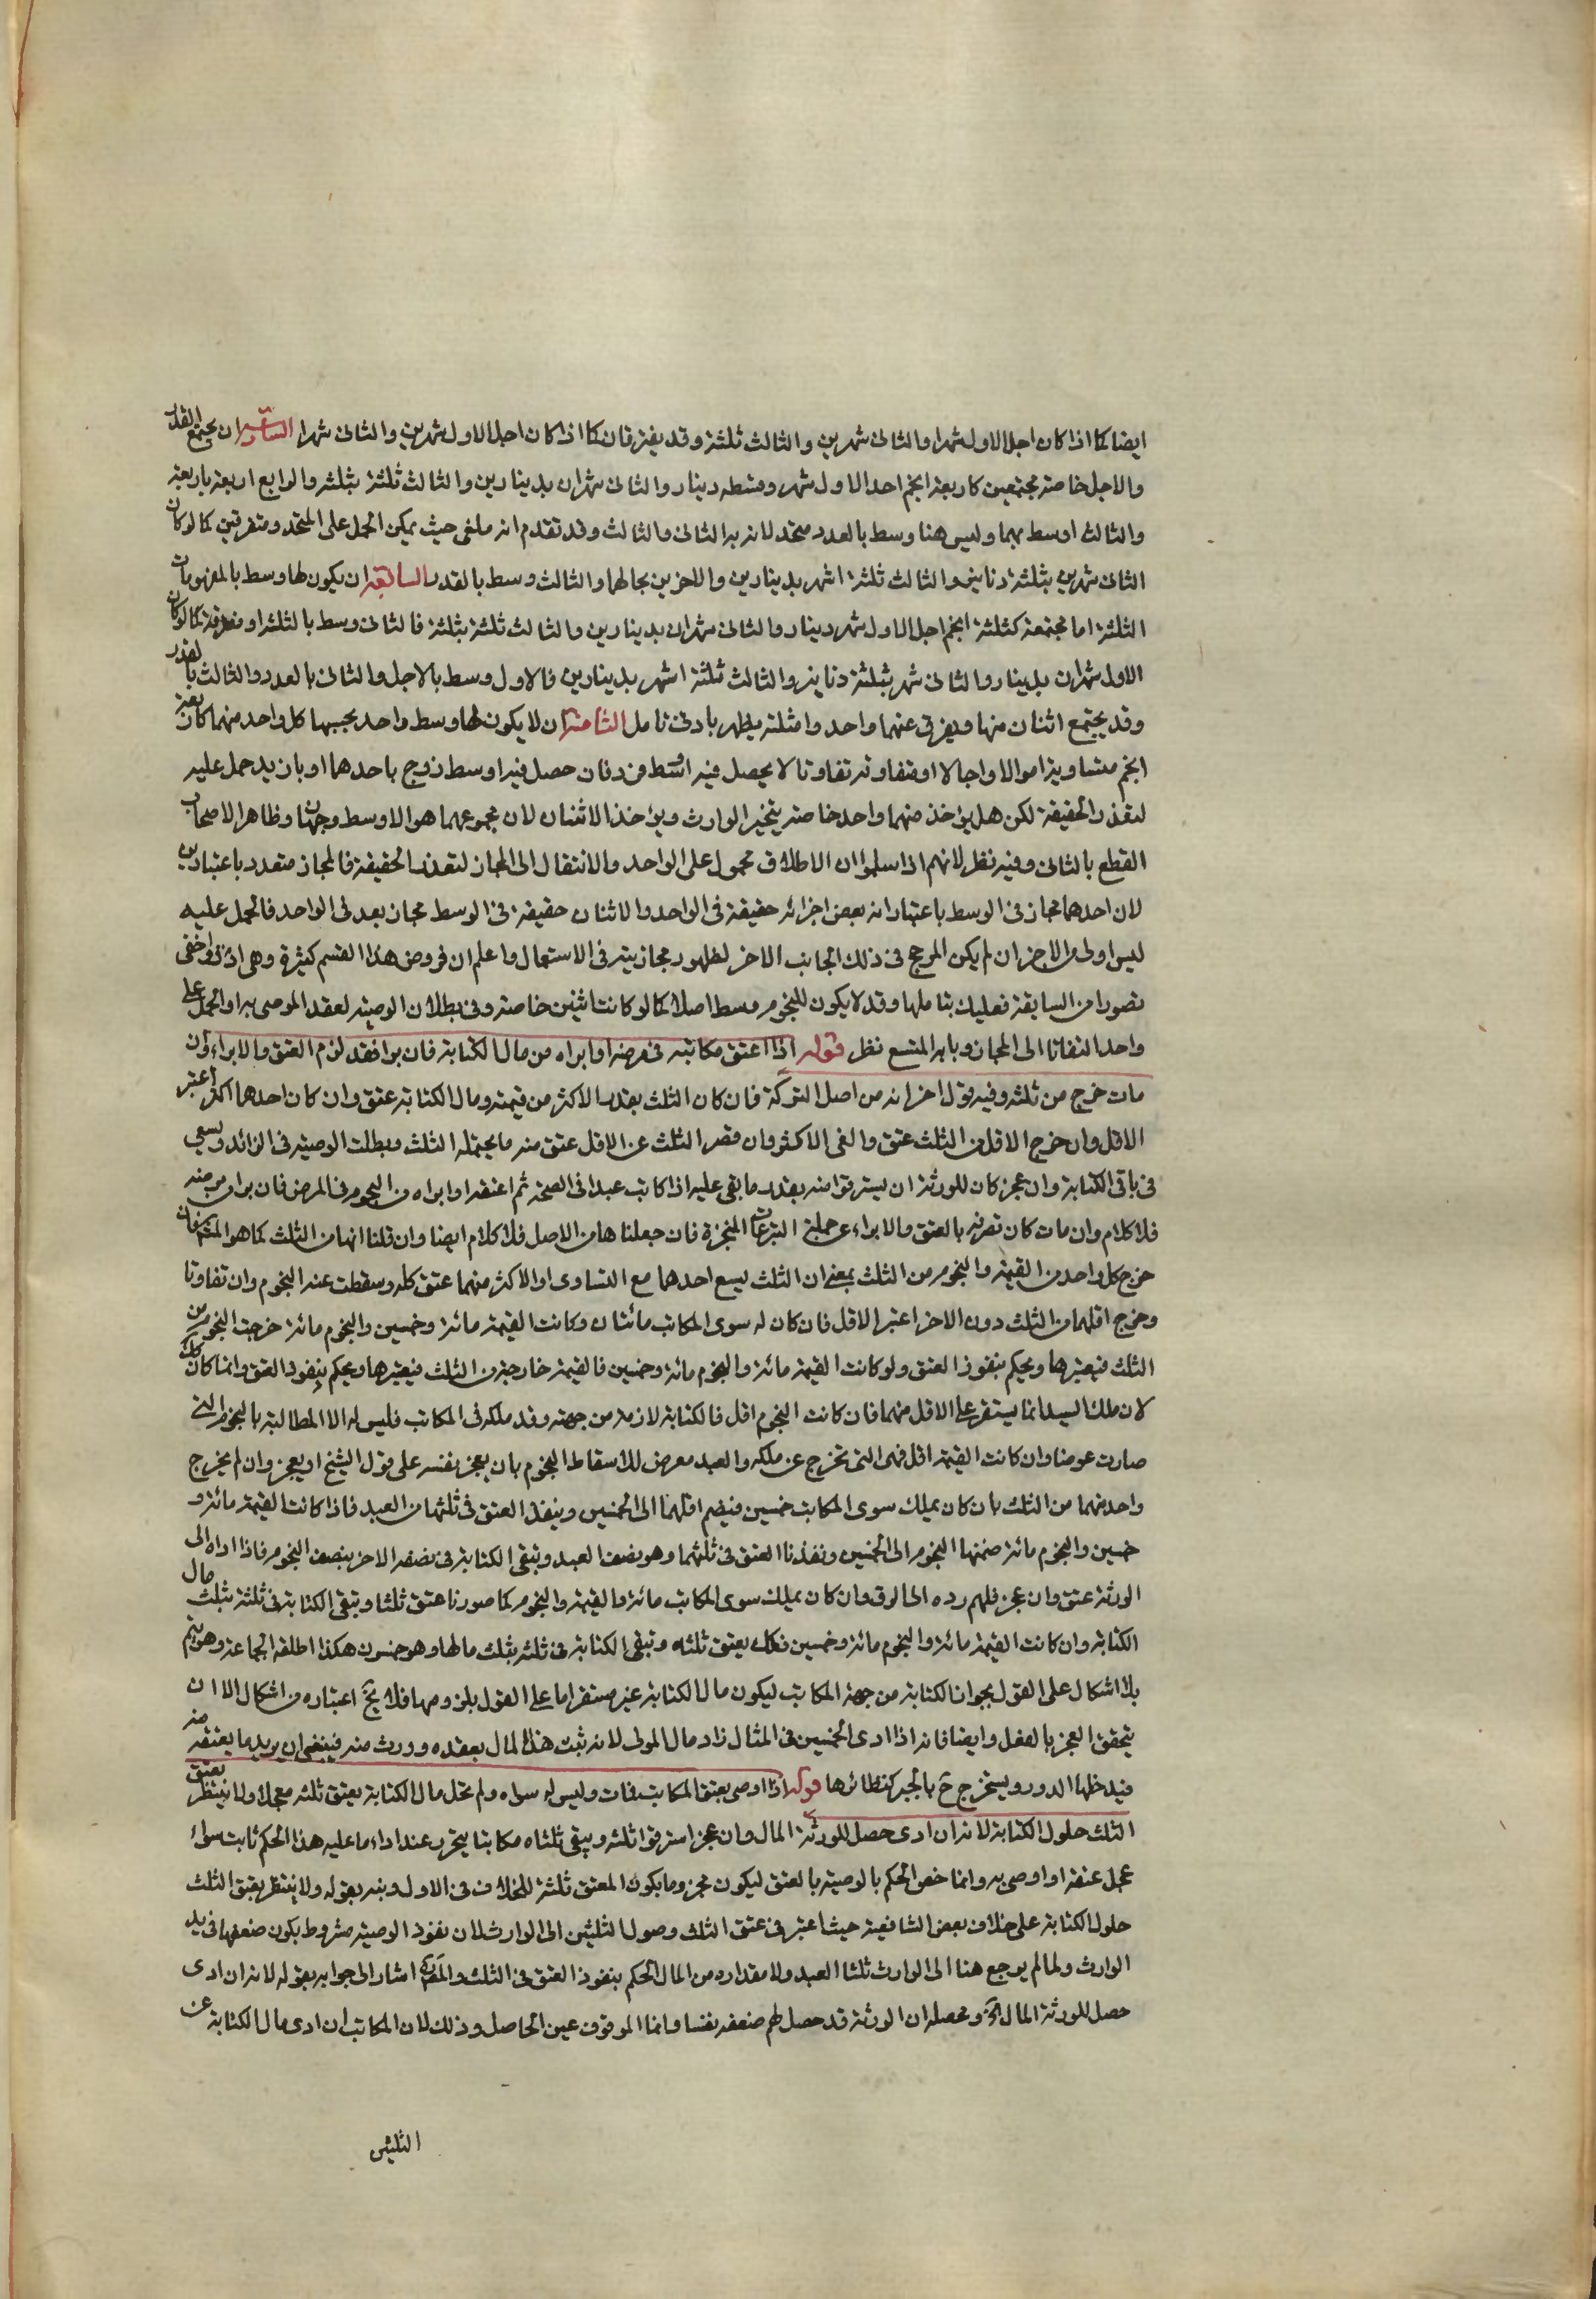 ايضا كما اذا كان اجل الاول شهرا والثانى شهرين والثالث ثلثة وقد يفترقان كما اذا كان اجل الاول شهرين والثانى شهرا السادسة ان يجتمع القدر
والاجل خاصة مجتمعين كاربعة انجم احدا الاول شهر وقسطه دينار والثانى شهران بدينارين والثالث ثلثة بثلثة والرابع اربعة باربعة
والثالث اوسط بهما وليس هنا وسط بالعدد متحد لانه به الثانى والثالث وقد تقدم انه ملغى حيث يمكن الحمل على المتحد ومتفرقين كما لو كان
الثانى شهرين بثلثة دنانير والثالث ثلثة اشهر بدينارين والاخرين بحالهما والثالث وسط بالقدر السابعة ان يكون لها وسط بالمفهومات
الثلثة اما مجتمعة كثلثة انجم اجل الاول شهر دينار والثانى شهران بدينارين والثالث ثلثة بثلثة فالثانى وسط بالثلثة او متفرقة كما لو كان
الاول شهران بدينار والثانى شهر بثلثة دنانير والثالث ثلثة اشهر بدينارين فالاول وسط بالاجل والثانى بالعدد والثالث بالقدر
وقد يجتمع اثنان منها ويفترق عنهما واحد وامثلته يظهر بادنى تامل الثامنة ان لا يكون لها وسط واحد بحسبها كل واحد منهما كاربعة
انجم متساوية اموالا واجالا او متفاوتة تفاوتا لا يحصل فيه اوسط فرد فان حصل فيه اوسط زوج باحدهما او بازيد حمل عليه
لتعذر الحقيقة لكن هل يؤخذ منهما واحد خاصة يتخير الوارث ويؤخذ الاثنان لان مجموعهما هو الاوسط وجهان وظاهر الاصحاب
القطع بالثانى وفيه نظر لانهم اذا سلموا ان الاطلاق محمول على الواحد والانتقال الى المجاز لتعذر الحقيقة فالمجاز متعدد باعتبارين
لان احدهما مجاز فى الوسط باعتبار انه بعض اجزائه حقيقة فى الواحد والاثنان حقيقة فى الوسط مجاز بعد فى الواحد فالحمل عليه
ليس اولى من الاخر ان لم يكن المرجح فى ذلك الجانب الاخر لظهور مجازيته فى الاستعمال واعلم ان فروض هذا القسم كثيرة وهى ادق واخفى
تصورا من السابقة فعليك بتاملها وقد لا يكون للنجوم وسط اصلا كما لو كانت اثنين خاصة وفى بطلان الوصية لعقد الموصى به او الحمل على
واحد التفاتا الى المجاز وبابه المتسع نظر قوله اذا اعتق مكاتبه فى مرضه او ابراه من مال الكتابة فان برا فقد لزم العتق والابراء وان
مات خرج من ثلثه وفيه قول اخر انه من اصل التركة فان كان الثلث بقدر الاكثر من قيمته ومال الكتابة عتق وان كان احدهما اكثر اعتبر
الاقل وان خرج الاقل من الثلث عتق والغى الاكثر وان قصر الثلث عن الاقل عتق منه ما يحتمله الثلث وبطلت الوصية فى الزائد ويسعى
فى باقى الكتابة وان عجز كان للورثة ان يسترقوا منه بقدر ما بقى عليه اذا كاتب عبدا فى الصحة ثم اعتقه او ابراه من النجوم فى المرض فان برا من مرضه
فلا كلام وان مات كان تصرفه بالعتق والابراء من جملة التبرعات المنجزة فان جعلناها من الاصل فلا كلام ايضا وان قلنا انها من الثلث كما هو المشهور فان
خرج كل واحد من القيمة والنجوم من الثلث بمعنى ان الثلث يسع احدهما مع التساوى او الاكثر منهما عتق كله وسقطت عنه النجوم وان تفاوتا
وخرج اقلهما من الثلث دون الاخر اعتبر الاقل فان كان له سوى المكاتب مائتان وكانت القيمة مائة وخمسين والنجوم مائة خرجت النجوم من
الثلث فيعتبرها ويحكم بنفوذ العتق ولو كانت القيمة مائة والنجوم مائة وخمسين فالقيمة خارجة من الثلث فيعتبرها ويحكم بنفوذ العتق وانما كان كذلك
لان ملك السيد انما يستقر على الاقل منهما فان كانت النجوم اقل فالكتابة لازمة من جهته وقد ملكه فى المكاتب فليس له الا المطالبة بالنجوم التى
صارت عوضا وان كانت القيمة اقل فهى التى تخرج عن ملكه والعبد معرض للاسقاط النجوم بان يعجز نفسه على قول الشيخ او يعجز وان لم يخرج
واحد منهما من الثلث بان كان يملك سوى المكاتب خمسين فيضم اقلهما الى الخمسين وينفذ العتق فى ثلثهما من العبد فاذا كانت القيمة مائة و
خمسين والنجوم مائة ضممنا النجوم الى الخمسين ونفذنا العتق فى ثلثهما وهو نصف العبد وتبقى الكتابة فى نصفه الاخر بنصف النجوم فاذا اداه الى
الورثة عتق وان عجز فلهم رده الى الرق وان كان يملك سوى المكاتب مائة والقيمة والنجوم كما صورنا عتق ثلثا وتبقى الكتابة فى ثلثه بثلث مال
الكتابة وان كانت القيمة مائة والنجوم مائة وخمسين فكك يعتق ثلثه وتبقى الكتابة فى ثلثه بثلث مالها وهو خمسون هكذا اطلقه الجماعة وهو يتم
بلا اشكال على القول بجواز الكتابة من جهة المكاتب ليكون مال الكتابة غير مستقر اما على القول بلزومها فلا يخ اعتباره من اشكال الا ان
يتحقق العجز بالفعل وايضا فانه اذا ادى الخمسين فى المثال زاد مال المولى لانه ثبت هذا المال بعقده وورث منه فينبغى ان يزيد ما يعتق منه
فيدخلها الدور ويستخرج ح بالجبر كنظائرها قوله اذا اوصى بعتق المكاتب فمات وليس له سواه ولم تحل مال الكتابة يعتق ثلثه معجلا ولا ينتظر بعتق
الثلث حلول الكتابة لانه ان ادى حصل للورثة المال وان عجز استرقوا ثلثه ويبقى ثلثاه مكاتبا يتحرر عند اداء ما عليه هذا الحكم ثابت سواء
عجل عتقه او اوصى به وانما خص الحكم بالوصية بالعتق ليكون محرزوما بكون المعتق ثلثة للخلاف فى الاول ونبه بقوله ولا ينتظر بعتق الثلث
حلول الكتابة على خلاف بعض الشافعية حيث اعتبر فى عتق الثلث وصول الثلثين الى الوارث لان نفوذ الوصية مشروط بكون ضعفها فى يد
الوارث ولما لم يرجع هنا الى الوارث ثلثا العبد ولا مقداره من المال الحكم بنفوذ العتق فى الثلث والمص ره اشار الى جوابه بقوله لانه ان ادى
حصل للورثة المال الخ ومحصله ان الورثة قد حصل لهم ضعفه نفسا وانما الموقوف عين الحاصل وذلك لان المكاتب ان ادى مال الكتابة عن
الثلثين